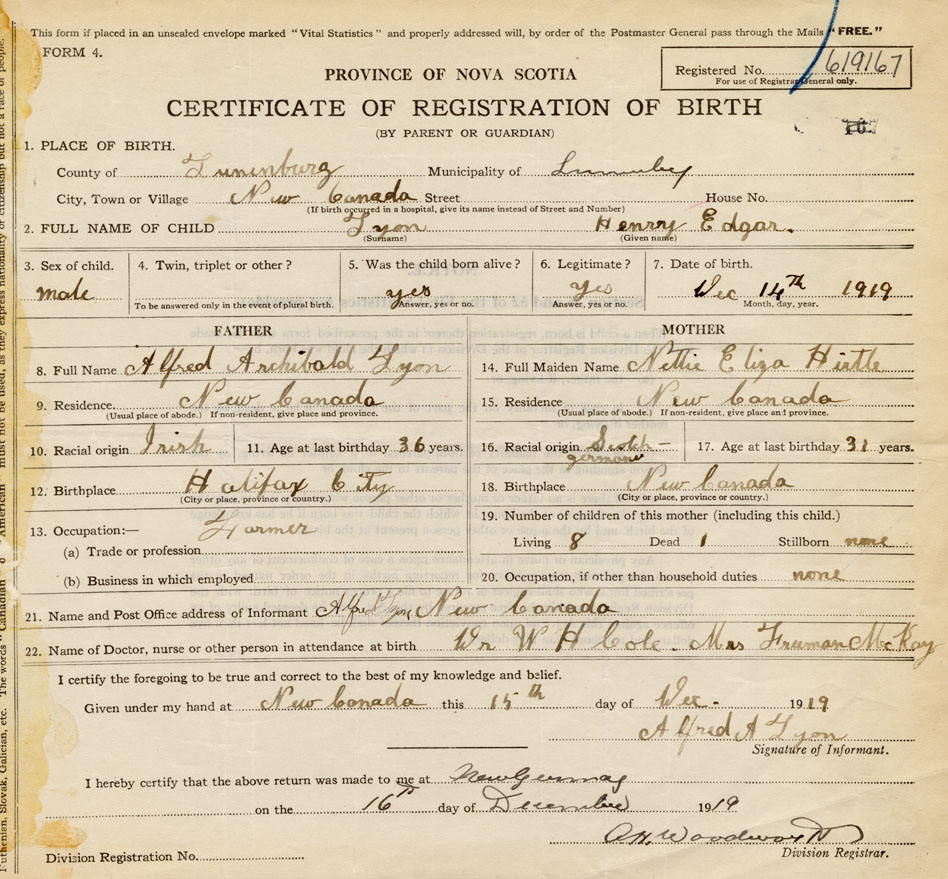 This form if placed in an unsealed envelope marked "Vital Statistics" and properly addressed will, by order of the Postmaster General pass through the Mails "FREE."
FORM 4.
Registered No. 619167
For use of Registrar General only.
PROVINCE OF NOVA SCOTIA
CERTIFICATE OF REGISTRATION OF BIRTH
(BY PARENT OR GUARDIAN)
1. PLACE OF BIRTH.
County of Lunenburg Municipality of
City, Town or Village New Canada Street House No.
(If birth occurred in a hospital, give its name instead of Street and Number)
2. FULL NAME OF CHILD Lyon Henry Edgar.
(Surname) (Given name)
3. Sex of child. 4. Twin, triplet or other? 5. Was the child born alive? 6. Legitimate? 7. Date of birth.
male yes yes Dec 14th 1919
To be answered only in the event of plural birth. Answer, yes or no. Answer, yes or no. Month, day, year.
FATHER MOTHER
8. Full Name Alfred Archibald Lyon 14. Full Maiden Name Nettie Eliza Hirtle
9. Residence. New Canada 15. Residence New Canada
(Usual place of abode.) If non-resident, give place and province. (Usual place of abode.) If non-resident, give place and province.
10. Racial origin Irish 11. Age at last birthday 36 years. 16. Racial origin Scotch- 17. Age at last birthday 31 years.
german
12. Birthplace Halifax City 18. Birthplace New Canada
(City or place, province or country.) (City or place, province or country.)
13. Occupation:— Farmer 19. Number of children of this mother (including this child.)
(a) Trade or profession Living 8 Dead 1 Stillborn none
(b) Business in which employed 20. Occupation, if other than household duties none
21. Name and Post Office address of Informant Alfred Lyon New Canada
22. Name of Doctor, nurse or other person in attendance at birth Dr W H Cole. Mrs Freeman McKay
I certify the foregoing to be true and correct to the best of my knowledge and belief.
Given under my hand at New Canada this 15th day of Dec - 1919
Alfred A Lyon
Signature of Informant.
I hereby certify that the above return was made to me at New Germany
on the 16th day of December 1919
Woodworth
Division Registrar.
Division Registration No.